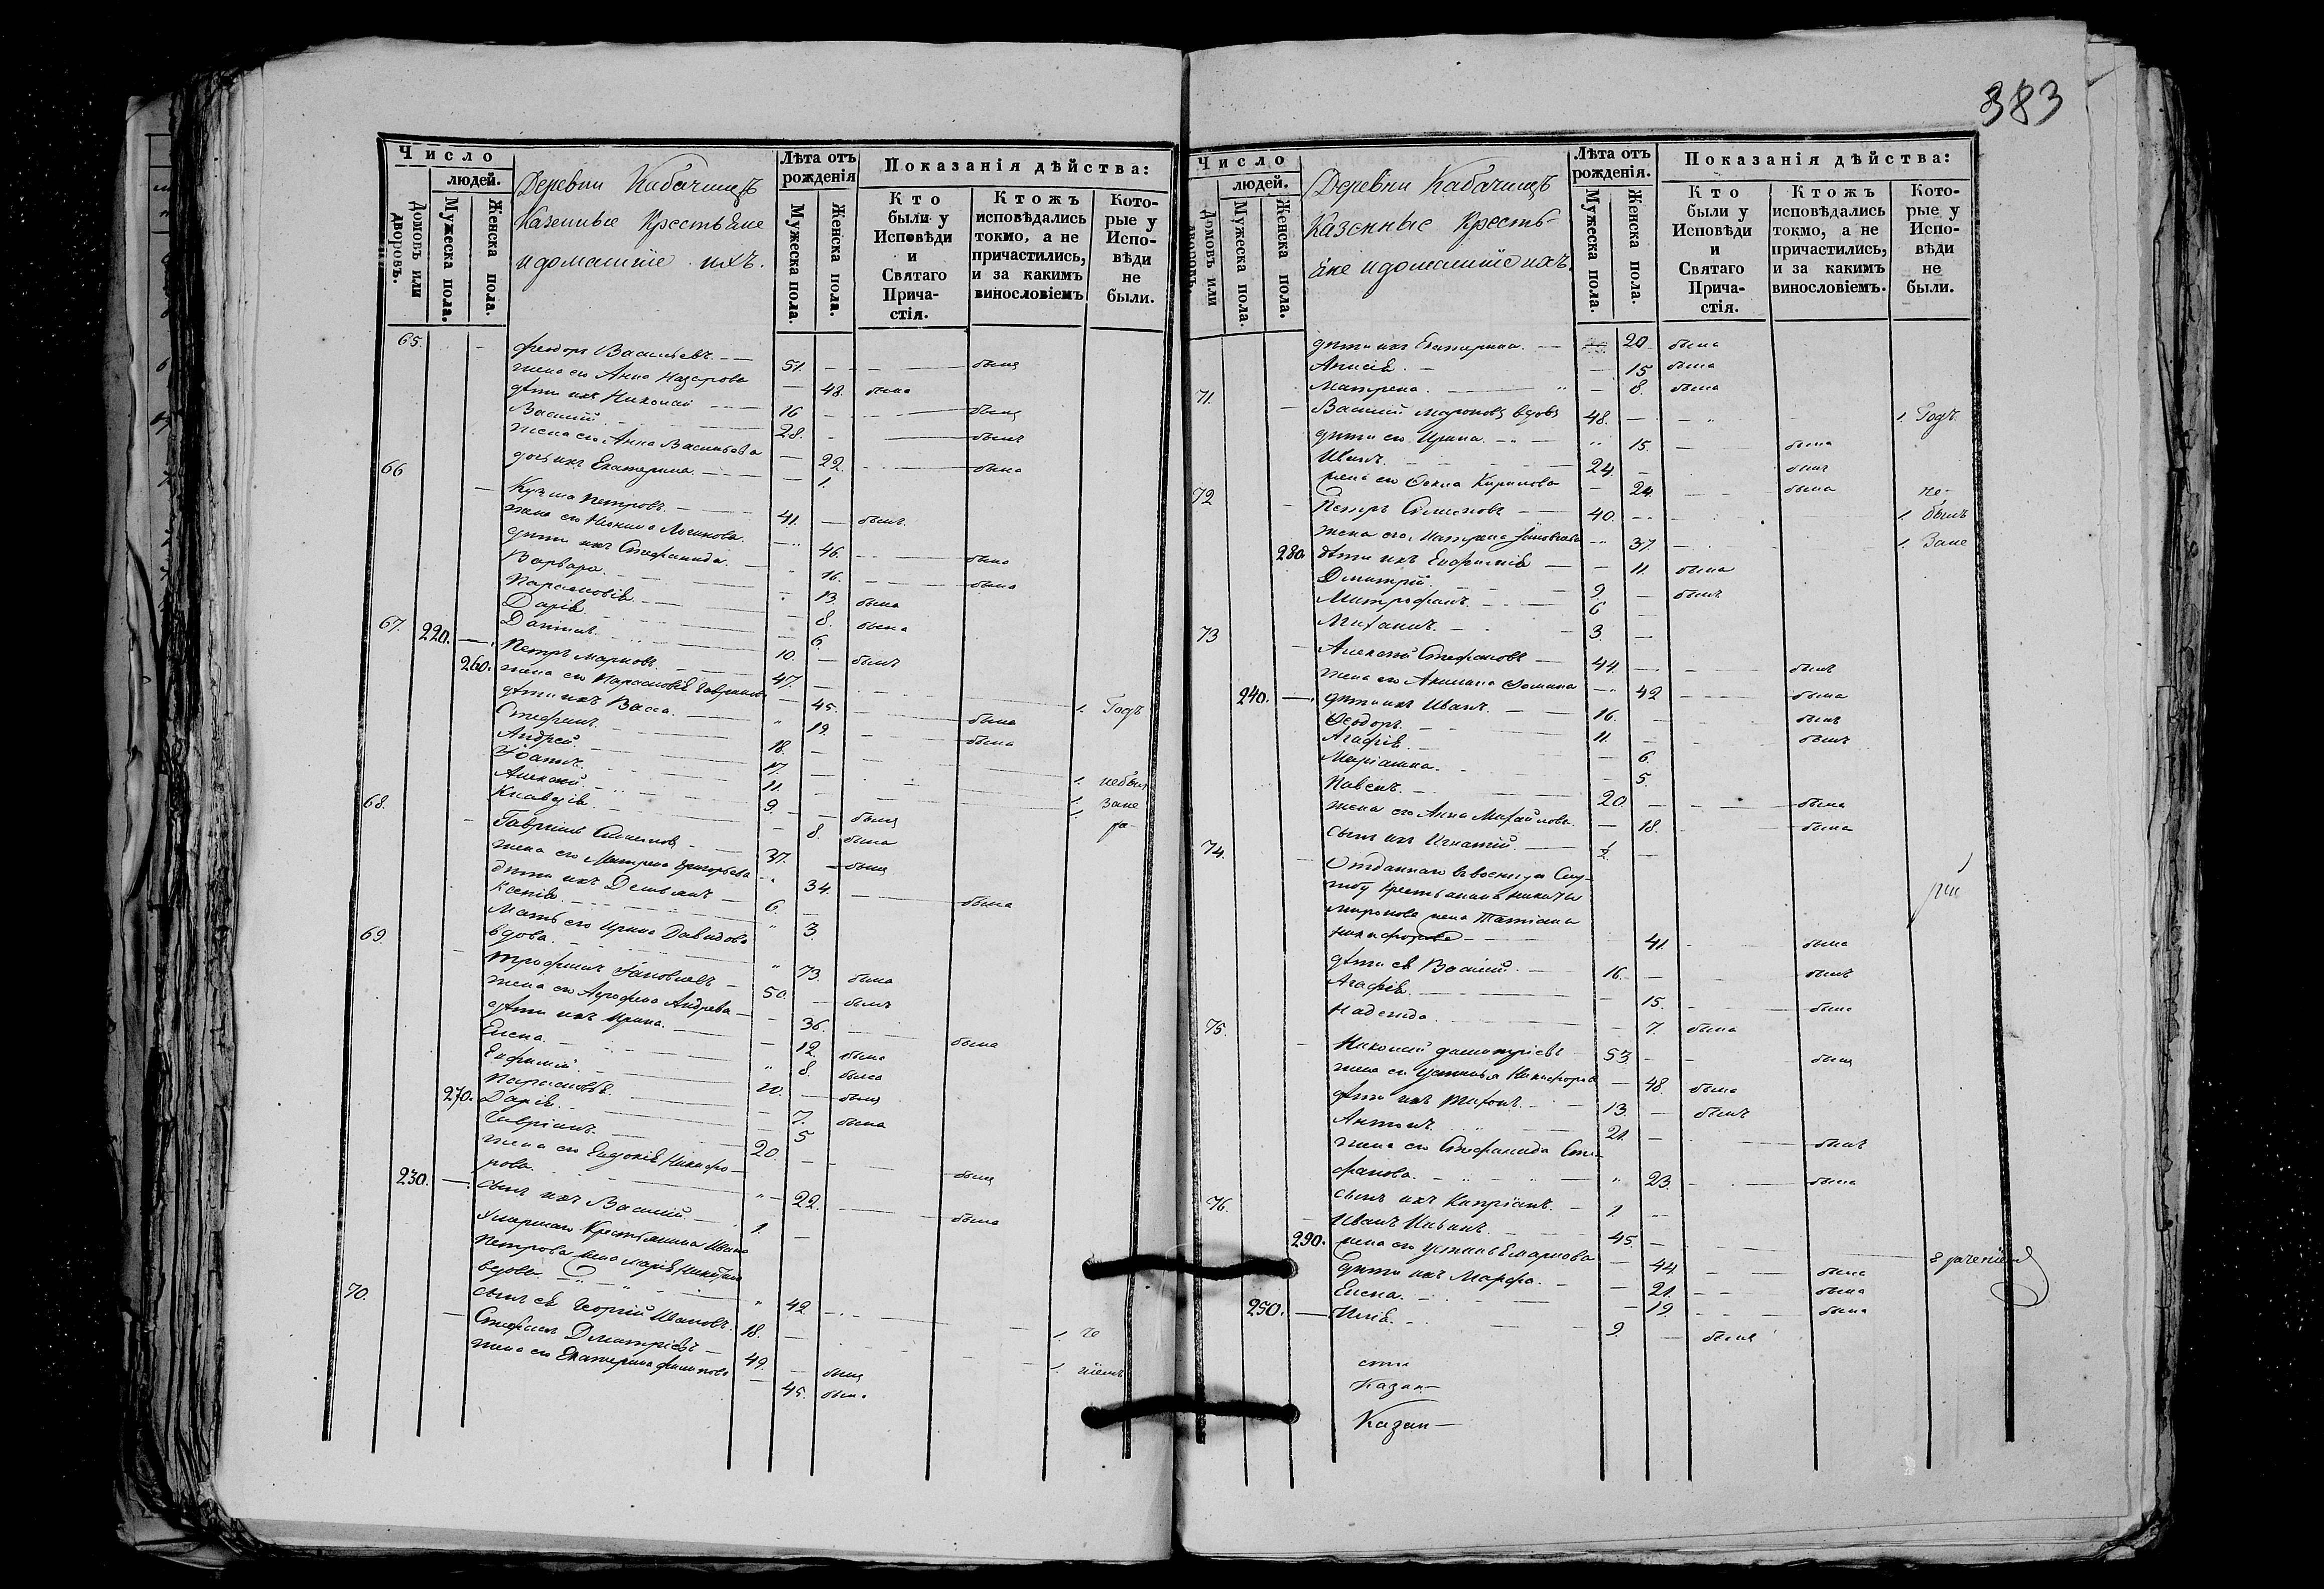 383
Число
людей.
Домовъ или дворовъ.
Мужеска пола.
Женска пола.
Деревни Кабачищъ
Казенные Крестьяне
и домашніе ихъ.
Лѣта отъ рожденія
Мужеска пола.
Женска пола.
Показанія дѣйства:
Кто были у Исповѣди и Святаго Причастія.
Ктожъ исповѣдались токмо, а не причастились, и за какимъ винословіемъ
Которые у Исповѣди не были.
65. Феодоръ Васильевъ 51. былъ
жена его Анна Назарова 48. была
дѣти ихъ Николай 16 былъ
Василий 28. былъ
жена его Анна Васильева 22. была
дочь ихъ Екатерина 1.
66 Кузьма Петровъ 41. былъ
жена его Логинова 46. была
дѣти ихъ Стефанида 16. была
Варвара 13. была
Парасковія 8. была
Дарія 6.
Даніилъ 10. былъ
67. 220. Петръ Марковъ 47. 1. Годъ
260. жена его Парасковія Гаврилова 45. была
дѣти ихъ Васса 19. была
Стефанъ 18. 1. небыл
Андрей 17. 1. Зане
Іоаннъ 11. былъ
Алексей 9. былъ
Клавдія 8. была
68. Гавріилъ Симеоновъ 37. былъ
жена его Матрена Григорьева 34. была
дѣти ихъ Демьянъ 6.
Ксенія 3.
Мать его Ирина Давидова
вдова 73. была
69. Трофимъ Яковлевъ 50. былъ
жена его Агрофена Андрева 36. была
дѣти ихъ Ирина 12. была
Елена 8. была
Евфимій 10. былъ
Парасковія 7. была
270. Дарія 5
Гавріилъ 20. былъ
жена его Евдокія Никифо-
рова 22. была
230. сынъ ихъ Василій 1.
Умершаго Крестьянина Ивана
Петрова жена Марія Никитина
вдова 42 1. че
сынъ ея Георгій Ивановъ 18. 1. ніемъ
70. Стефанъ Дмитріевъ 49. былъ
жена его Екатерина Филипова 45. была
Число
людей.
Домовъ или дворовъ.
Мужеска пола.
Женска пола.
Деревни Кабачищъ
Казенные Кресть-
яне и домашніе ихъ.
Лѣта отъ рожденія.
Мужеска пола.
Женска пола.
Показанія дѣйства:
Кто были у Исповѣди и Святаго Причастія.
Ктожъ исповѣдались токмо, а не причастились, и за какимъ винословіемъ.
Которые у Исповѣди не были.
дѣти ихъ Екатерина 20 была
Анисія 15 была
Матрена 8. была
71. Василий Мироновъ вдовъ 48. 1. Годъ
дѣти его Ирина 15. была
Иванъ 24. былъ
жена его Фекла Кирилова 24 была
72 Петръ Симеоновъ 40. 1. не былъ
жена его Матрена Яковлева 37. 1. Зане
280. дѣти ихъ Евфимія 11. была
Дмитрій 9. былъ
Митрофанъ 6
Михаилъ 3.
73 Алексей Стефановъ 44. былъ
жена его Акилина Фомина 42 была
240. дѣти ихъ Иванъ 16. былъ
Феодоръ 11. былъ
Агафія 6.
Маріанна 5.
Павелъ 20. былъ
жена его Анна Михайлова 18. была
сынъ ихъ Игнатій ½.
74. Отданнаго в военную Слу-
жбу Крестьянина Никиты
Миронова жена Татіана
Никифорова 41. была
дѣти ея Василій 16. былъ
Агафія 15. была
Надежда 7. была
75. Николай Димитріевъ 53. былъ
жена его Устинья Никифорова 48. была
дѣти ихъ Тихонъ 13. былъ
Антонъ 21. былъ
жена его Стефанида Сте-
фанова 23. была
сынъ ихъ Кипріанъ 1.
76. Иванъ Ильинъ 45.
290. жена его Устинья Маркова 44. была
дѣти ихъ Марфа 21. была
Елена 19. была
250. Илія 9. былъ
Казан-
Казан-